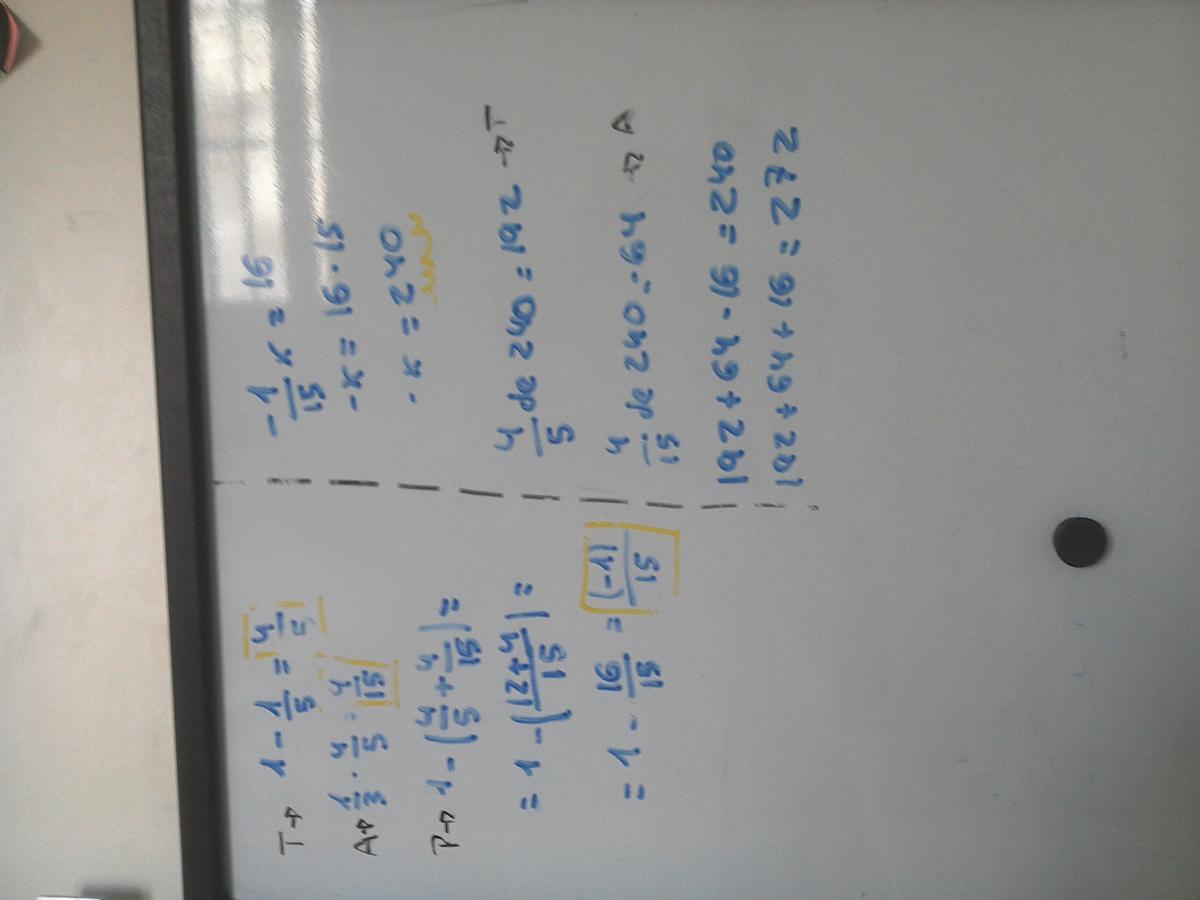 T→ 1 - 1/5 = 4/5
A→ 1/3 · 4/5 = 4/15
P→ 1 - (4/5 + 4/15) =
= 1 - (12+4/15) =
= 1 - 16/15 = (-1)/15
-1/15 x = 16
-x = 16·15
-x = 240
4/5 de 240 = 192 → T
4/15 de 240 = 64 → A
192 + 64 - 16 = 240
192 + 64 + 16 = 272